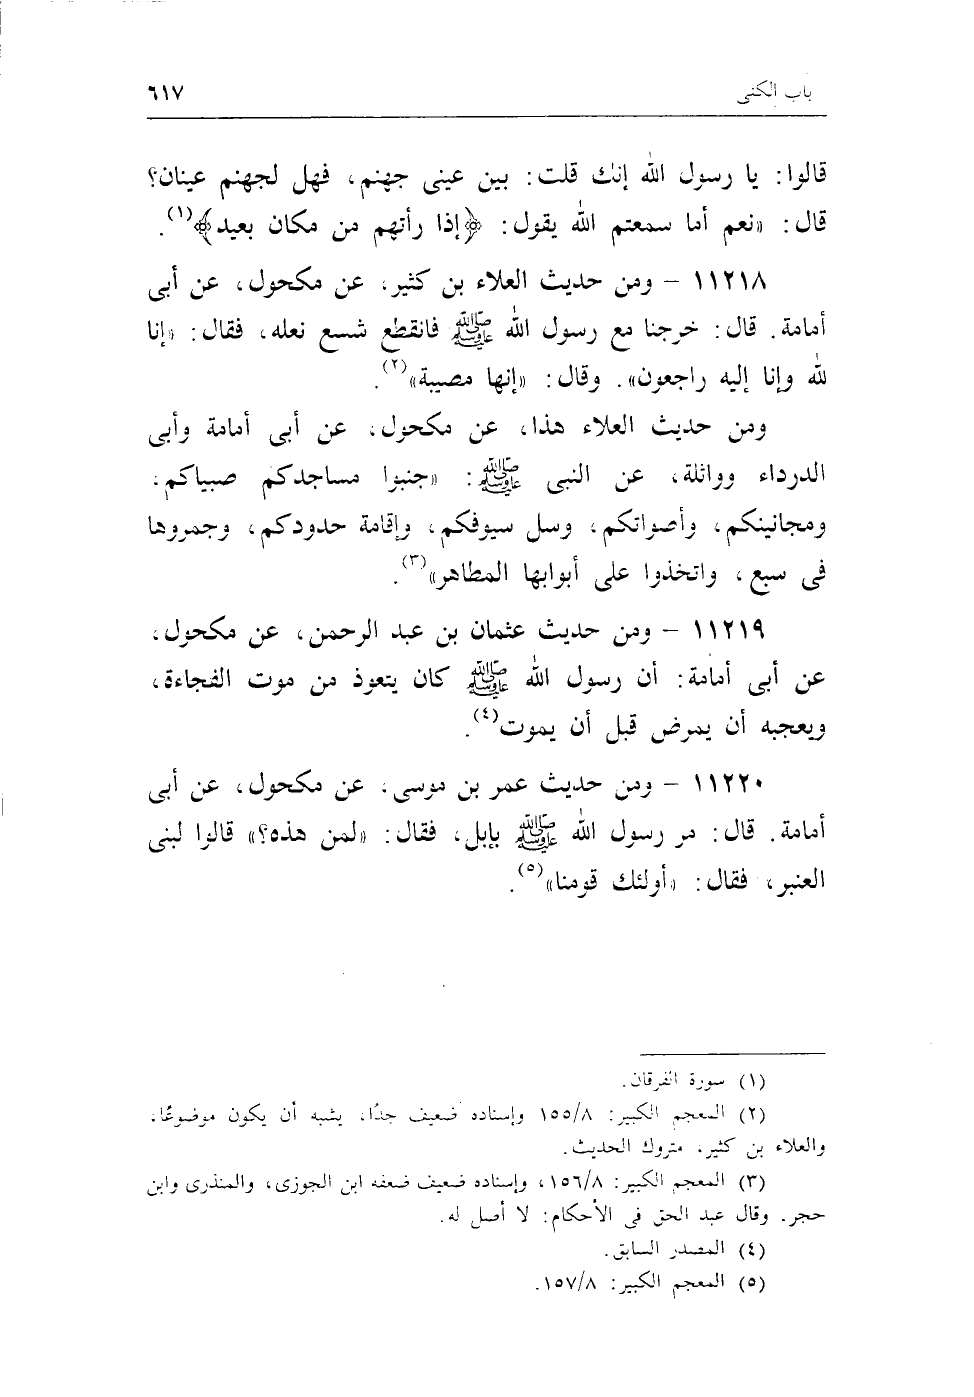 باب الكنى ٦١٧
قالوا: يا رسول الله إنك قلت: بين عينى جهنم، فهل لجهنم عينان؟
قال: «نعم أما سمعتم الله يقول: ﴿إذا رأتهم من مكان بعيد﴾(١).
١١٢١٨ - ومن حديث العلاء بن كثير، عن مكحول، عن أبى
أمامة. قال: خرجنا مع رسول الله ﷺ فانقطع شسع نعله، فقال: «إنا
لله وإنا إليه راجعون». وقال: «إنها مصيبة»(٢).
ومن حديث العلاء هذا، عن مكحول، عن أبى أمامة وأبى
الدرداء وواثلة، عن النبى ﷺ: «جنبوا مساجدكم صبياكم،
ومجانينكم، وأصواتكم، وسل سيوفكم، وإقامة حدودكم، وجمروها
فى سبع، واتخذوا على أبوابها المطاهر»(٣).
١١٢١٩ - ومن حديث عثمان بن عبد الرحمن، عن مكحول،
عن أبى أمامة: أن رسول الله ﷺ كان يتعوذ من موت الفجاءة،
ويعجبه أن يمرض قبل أن يموت(٤).
١١٢٢٠ - ومن حديث عمر بن موسى، عن مكحول، عن أبى
أمامة. قال: مر رسول الله ﷺ بإبل، فقال: «لمن هذه؟» قالوا لبنى
العنبر، فقال: «أولئك قومنا»(٥).
(١) سورة الفرقان.
(٢) المعجم الكبير: ١٥٥/٨ وإسناده ضعيف جدًا، يشبه أن يكون موضوعًا،
والعلاء بن كثير، متروك الحديث.
(٣) المعجم الكبير: ١٥٦/٨، وإسناده ضعيف ضعفه ابن الجوزى، والمنذرى وابن
حجر. وقال عبد الحق فى الأحكام: لا أصل له.
(٤) المصدر السابق.
(٥) المعجم الكبير: ١٥٧/٨.